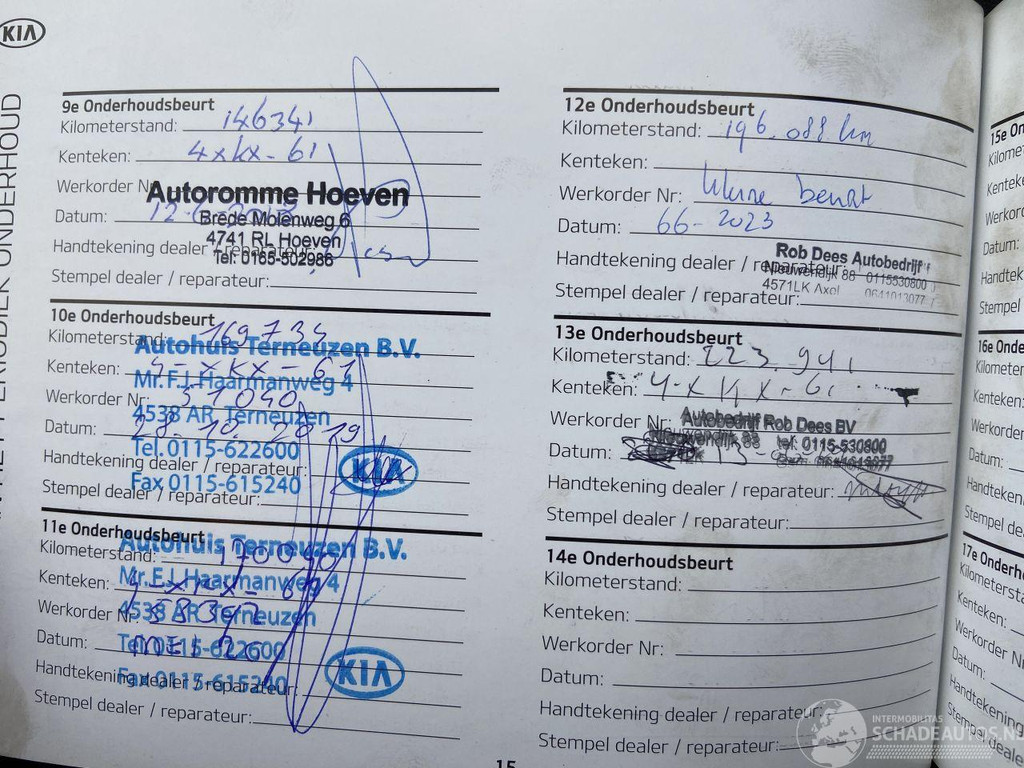 KIA
PERIODIEK ONDERHOUD
9e Onderhoudsbeurt
Kilometerstand: 146341
Kenteken: 4-xkx-61
Werkorder Nr:
Autoromme Hoeven
Datum:
Brede Molenweg 6
4741 RL Hoeven
Handtekening dealer / reparateur:
Tel: 0165-502986
Stempel dealer / reparateur:
10e Onderhoudsbeurt
Kilometerstand: 169734
Autohuis Terneuzen B.V.
Kenteken: 4-xkx-61
Mr. F.J. Haarmanweg 4
Werkorder Nr: 51040
4538 AR Terneuzen
Datum: 28.10.2019
Tel. 0115-622600
Handtekening dealer / reparateur:
KIA
Fax 0115-615240
Stempel dealer / reparateur:
11e Onderhoudsbeurt
Autohuis Terneuzen B.V.
Kilometerstand:
Kenteken:
Mr. F.J. Haarmanweg 4
Werkorder Nr:
4538 AR Terneuzen
Datum:
Tel. 0115-622600
Handtekening dealer / reparateur:
KIA
Fax 0115-615240
Stempel dealer / reparateur:
12e Onderhoudsbeurt
Kilometerstand: 196.088 km
Kenteken:
Werkorder Nr: kleine beurt
Datum: 66-2023
Rob Dees Autobedrijf
Handtekening dealer / reparateur:
Nieuwendijk 88 0115530800
4571LK Axel 0641013077
Stempel dealer / reparateur:
13e Onderhoudsbeurt
Kilometerstand: 223.941
Kenteken: 4-XKX-61
Werkorder Nr:
Autobedrijf Rob Dees BV
Nieuwendijk 88 tel. 0115-530800
Datum:
Handtekening dealer / reparateur:
Stempel dealer / reparateur:
14e Onderhoudsbeurt
Kilometerstand:
Kenteken:
Werkorder Nr:
Datum:
Handtekening dealer / reparateur:
Stempel dealer / reparateur:
15
15e On
Kilome
Kenteke
Werkor
Datum:
Handtek
Stempel
16e Onde
Kilometer
Kenteken
Werkorde
Datum:
Handteken
Stempel de
17e Onderh
Kilometersta
Kenteken:
Werkorder
Datum:
Handtekenin
Stempel deale
INTERMOBILITAS
SCHADEAUTOS.NL